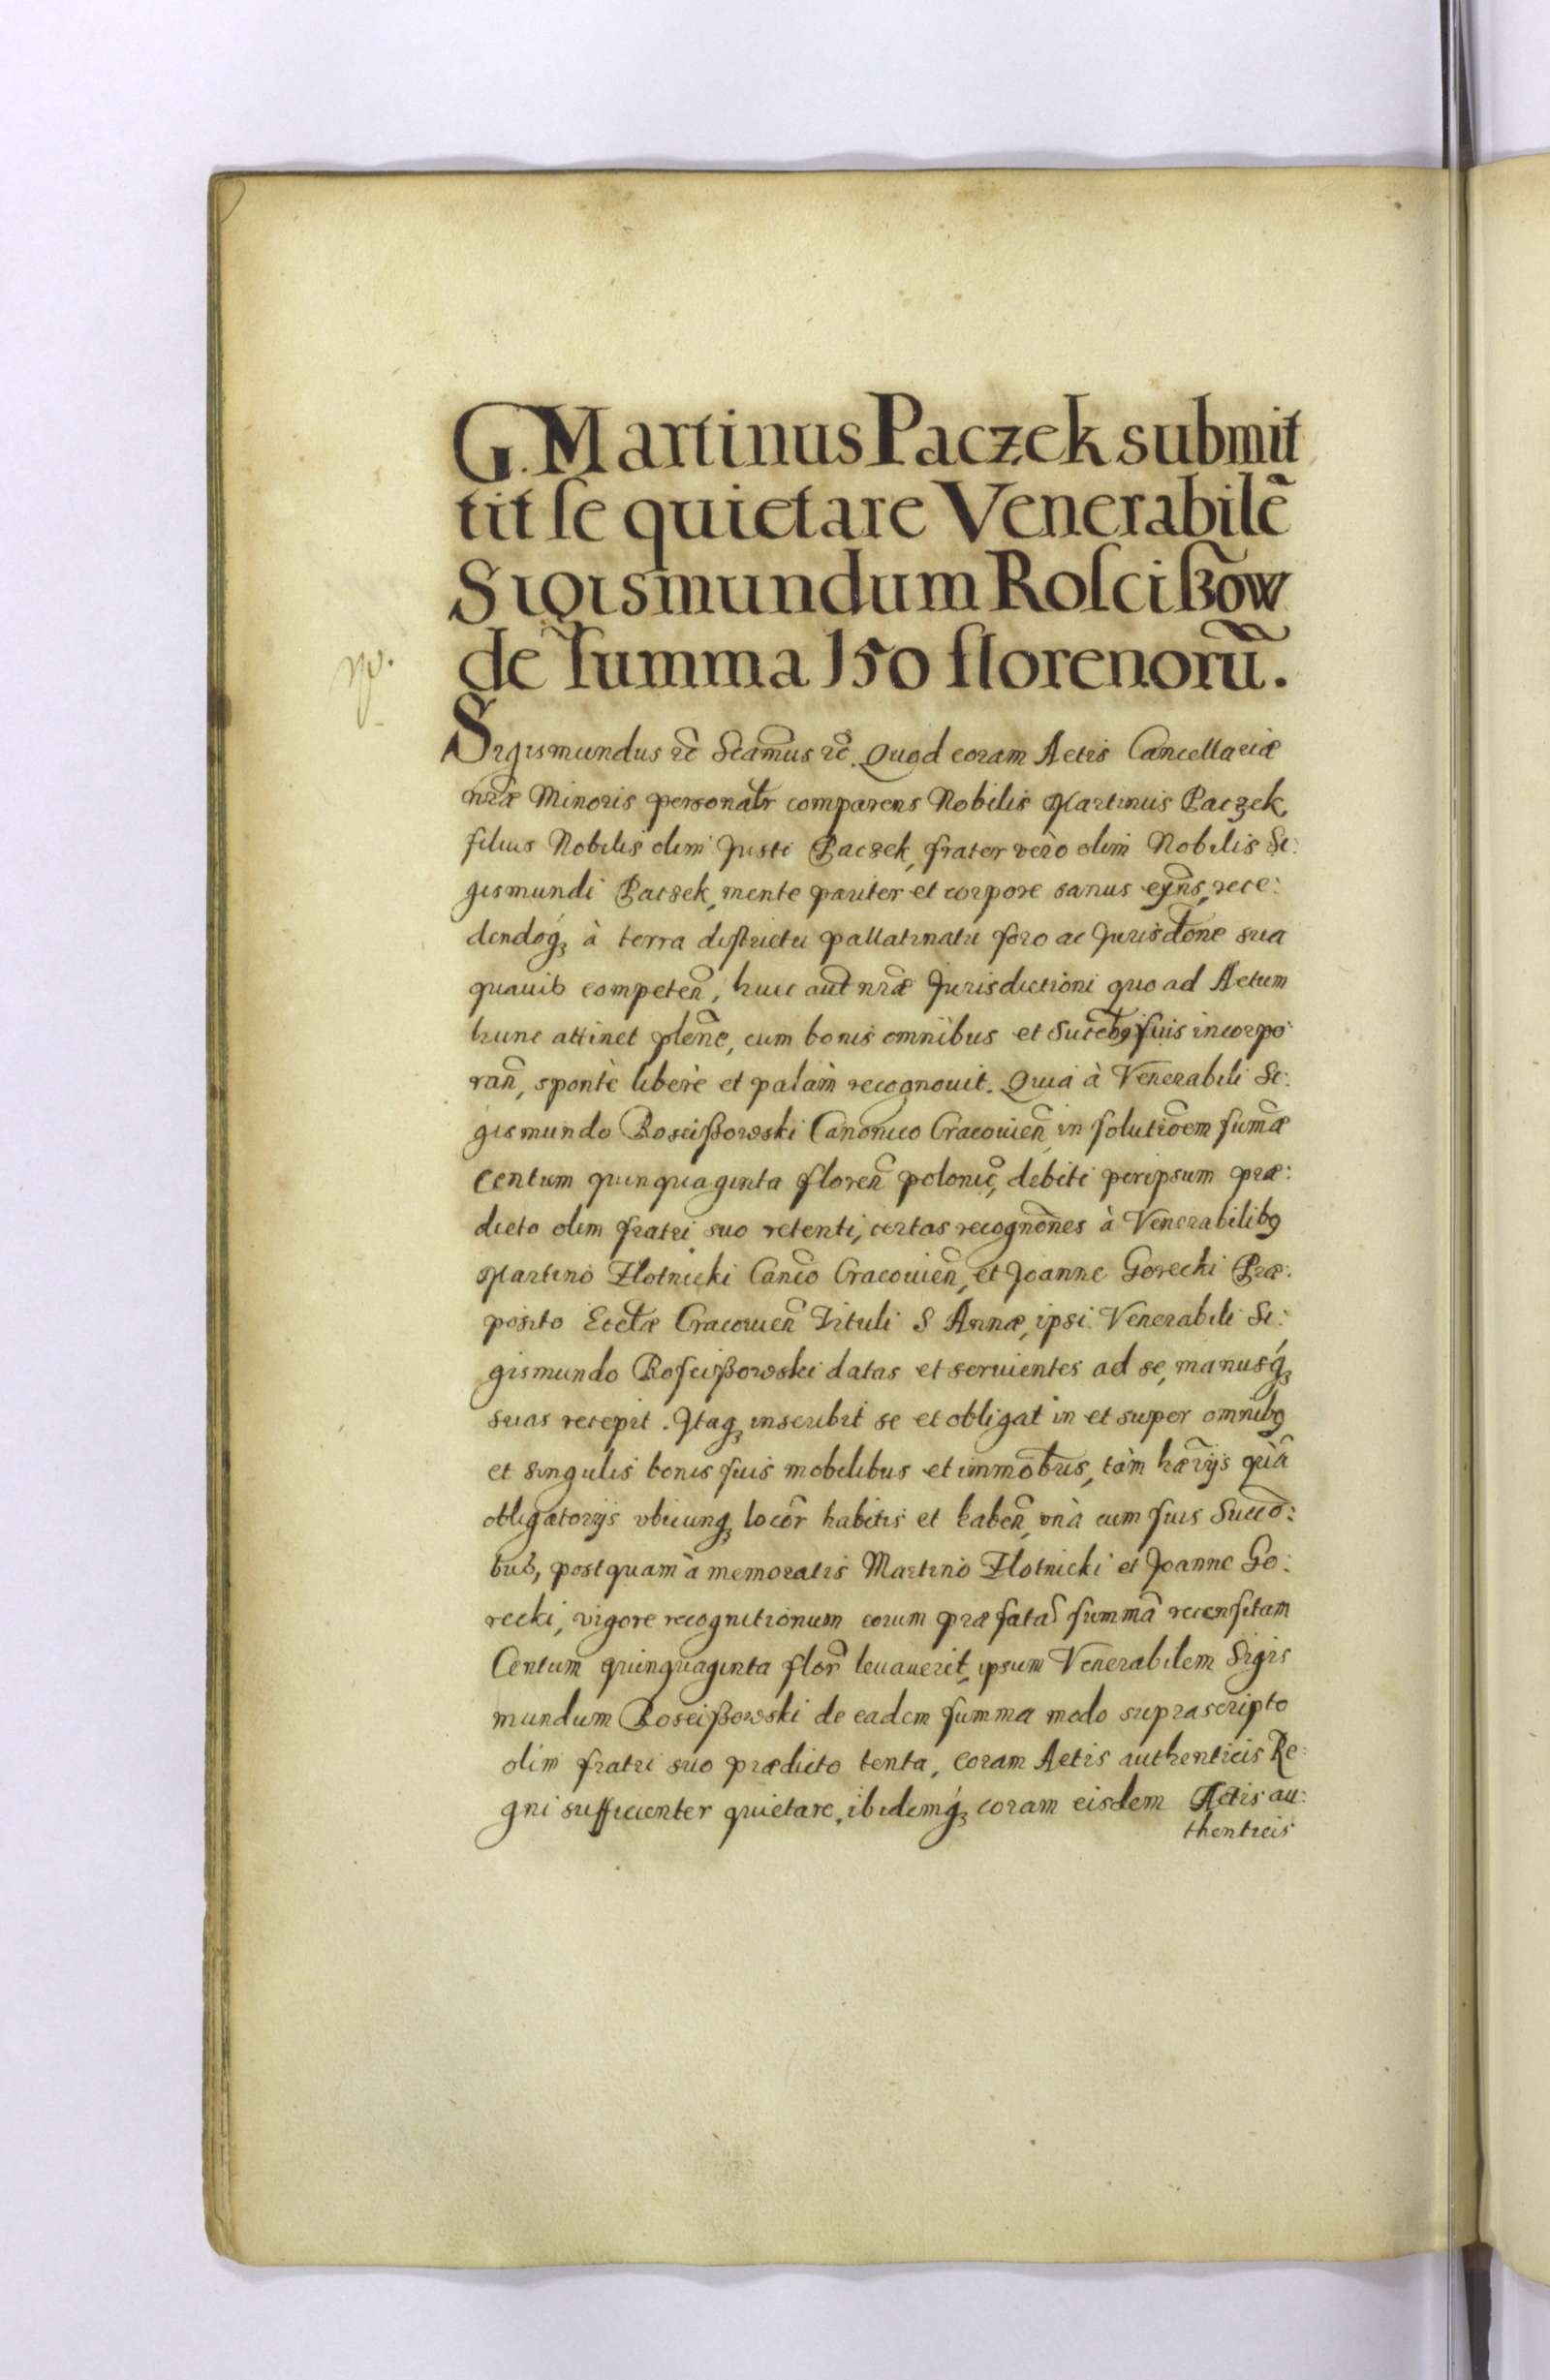 G. Martinus Paczek submit
tit se quietare Venerabilẽ
Sigismundum Rosciszõw
de summa 150 florenorũ.
Sigismundus rc̃ Scamũs rc̃. Quod coram Actis Cancellariæ
nr̃æ Minoris personalr comparens Nobilis Martinus Paczek
filius Nobilis olim Justi Paczek, frater verò olim Nobilis Si:
gismundi Paczek, mente pariter et corpore sanus exñs, rece:
dendoq́ꝫ à terra districtu pallatinatu foro ac Jurisdtõne sua
quauis competeñ, huic aut̃ nr̃æ Jurisdictioni quo ad Actum
hunc attinet plenẽ, cum bonis omnibus et Succtbꝯ suis incorpo
rañ, spontè liberè et palàm recognouit. Quia à Venerabili Si:
gismundo Rosciszowski Canonico Cracouieñ, in solutiõem sum̃æ
Centum quinquaginta floreñ polonic̃, debiti peripsum præ:
dicto olim fratri suo retenti, certas recognõnes à Venerabilibꝯ
Martino Złotnicki Canc̃o Cracouieñ, et Joanne Gorecki Præ:
posito Ecctæ Cracouieñ Tituli S Annæ, ipsi Venerabili Si:
gismundo Rosciszowski datas et seruientes ad se, manusq́ꝫ
suas recepit. Itaqꝫ inscribit se et obligat in et super omnibꝯ
et singulis bonis suis mobilibus et immõbus, tàm hær̃ijs quã
obligatorijs vbicunqꝫ locor̃ habitis et habeñ, vnà cum suis Succõ:
bus, postquam à memoratis Martino Złotnicki et Joanne Go:
recki, vigore recognitionum eorum præfatã summã recensitam
Centum quinquaginta flor̃ leuauerit, ipsum Venerabilem Sigis
mundum Rosciszowski de eadem summa modo suprascripto
olim fratri suo prædicto tenta, coram Actis authenticis Re:
gni sufficienter quietare, ibidemq́ꝫ coram eisdem Actis au:
thenticis